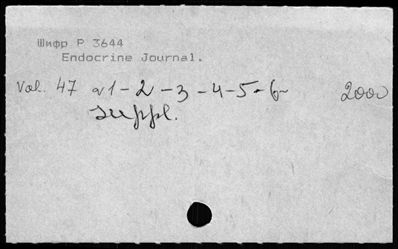 Шифр P 3644
Endocrine Journal.
Vol. 47 N1-2-3-4-5-6- 2000
suppl.